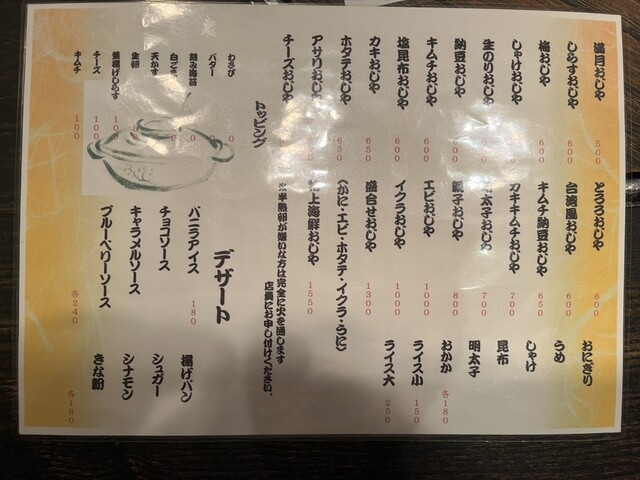 満月おじや 500
しらすおじや 600
梅おじや 600
しゃけおじや
生のりおじや
納豆おじや
キムチおじや 600
塩昆布おじや 600
カキおじや 650
ホタテおじや 650
アサリおじや
チーズおじや
とろろおじや 600
台湾風おじや 600
キムチ納豆おじや 650
カキキムチおじや 700
明太子おじや 700
親子おじや 800
エビおじや 1000
イクラおじや 1000
盛合せおじや 1300
(かに・エビ・ホタテ・イクラ・うに)
極上海鮮おじや 1550
※半熟卵が嫌いな方は完全に火を通します
店員にお申し付けください。
おにぎり
うめ
しゃけ
昆布
明太子
おかか 各180
ライス小 150
ライス大 250
トッピング
わさび
バター
刻み海苔
白ごま
天かす
生卵
釜揚げしらす
チーズ 100
キムチ 100
デザート
バニラアイス 180
チョコソース
キャラメルソース
ブルーベリーソース 各240
揚げパン
シュガー
シナモン
きな粉 各160